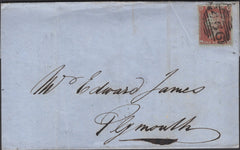 Mr Edward James
Plymouth